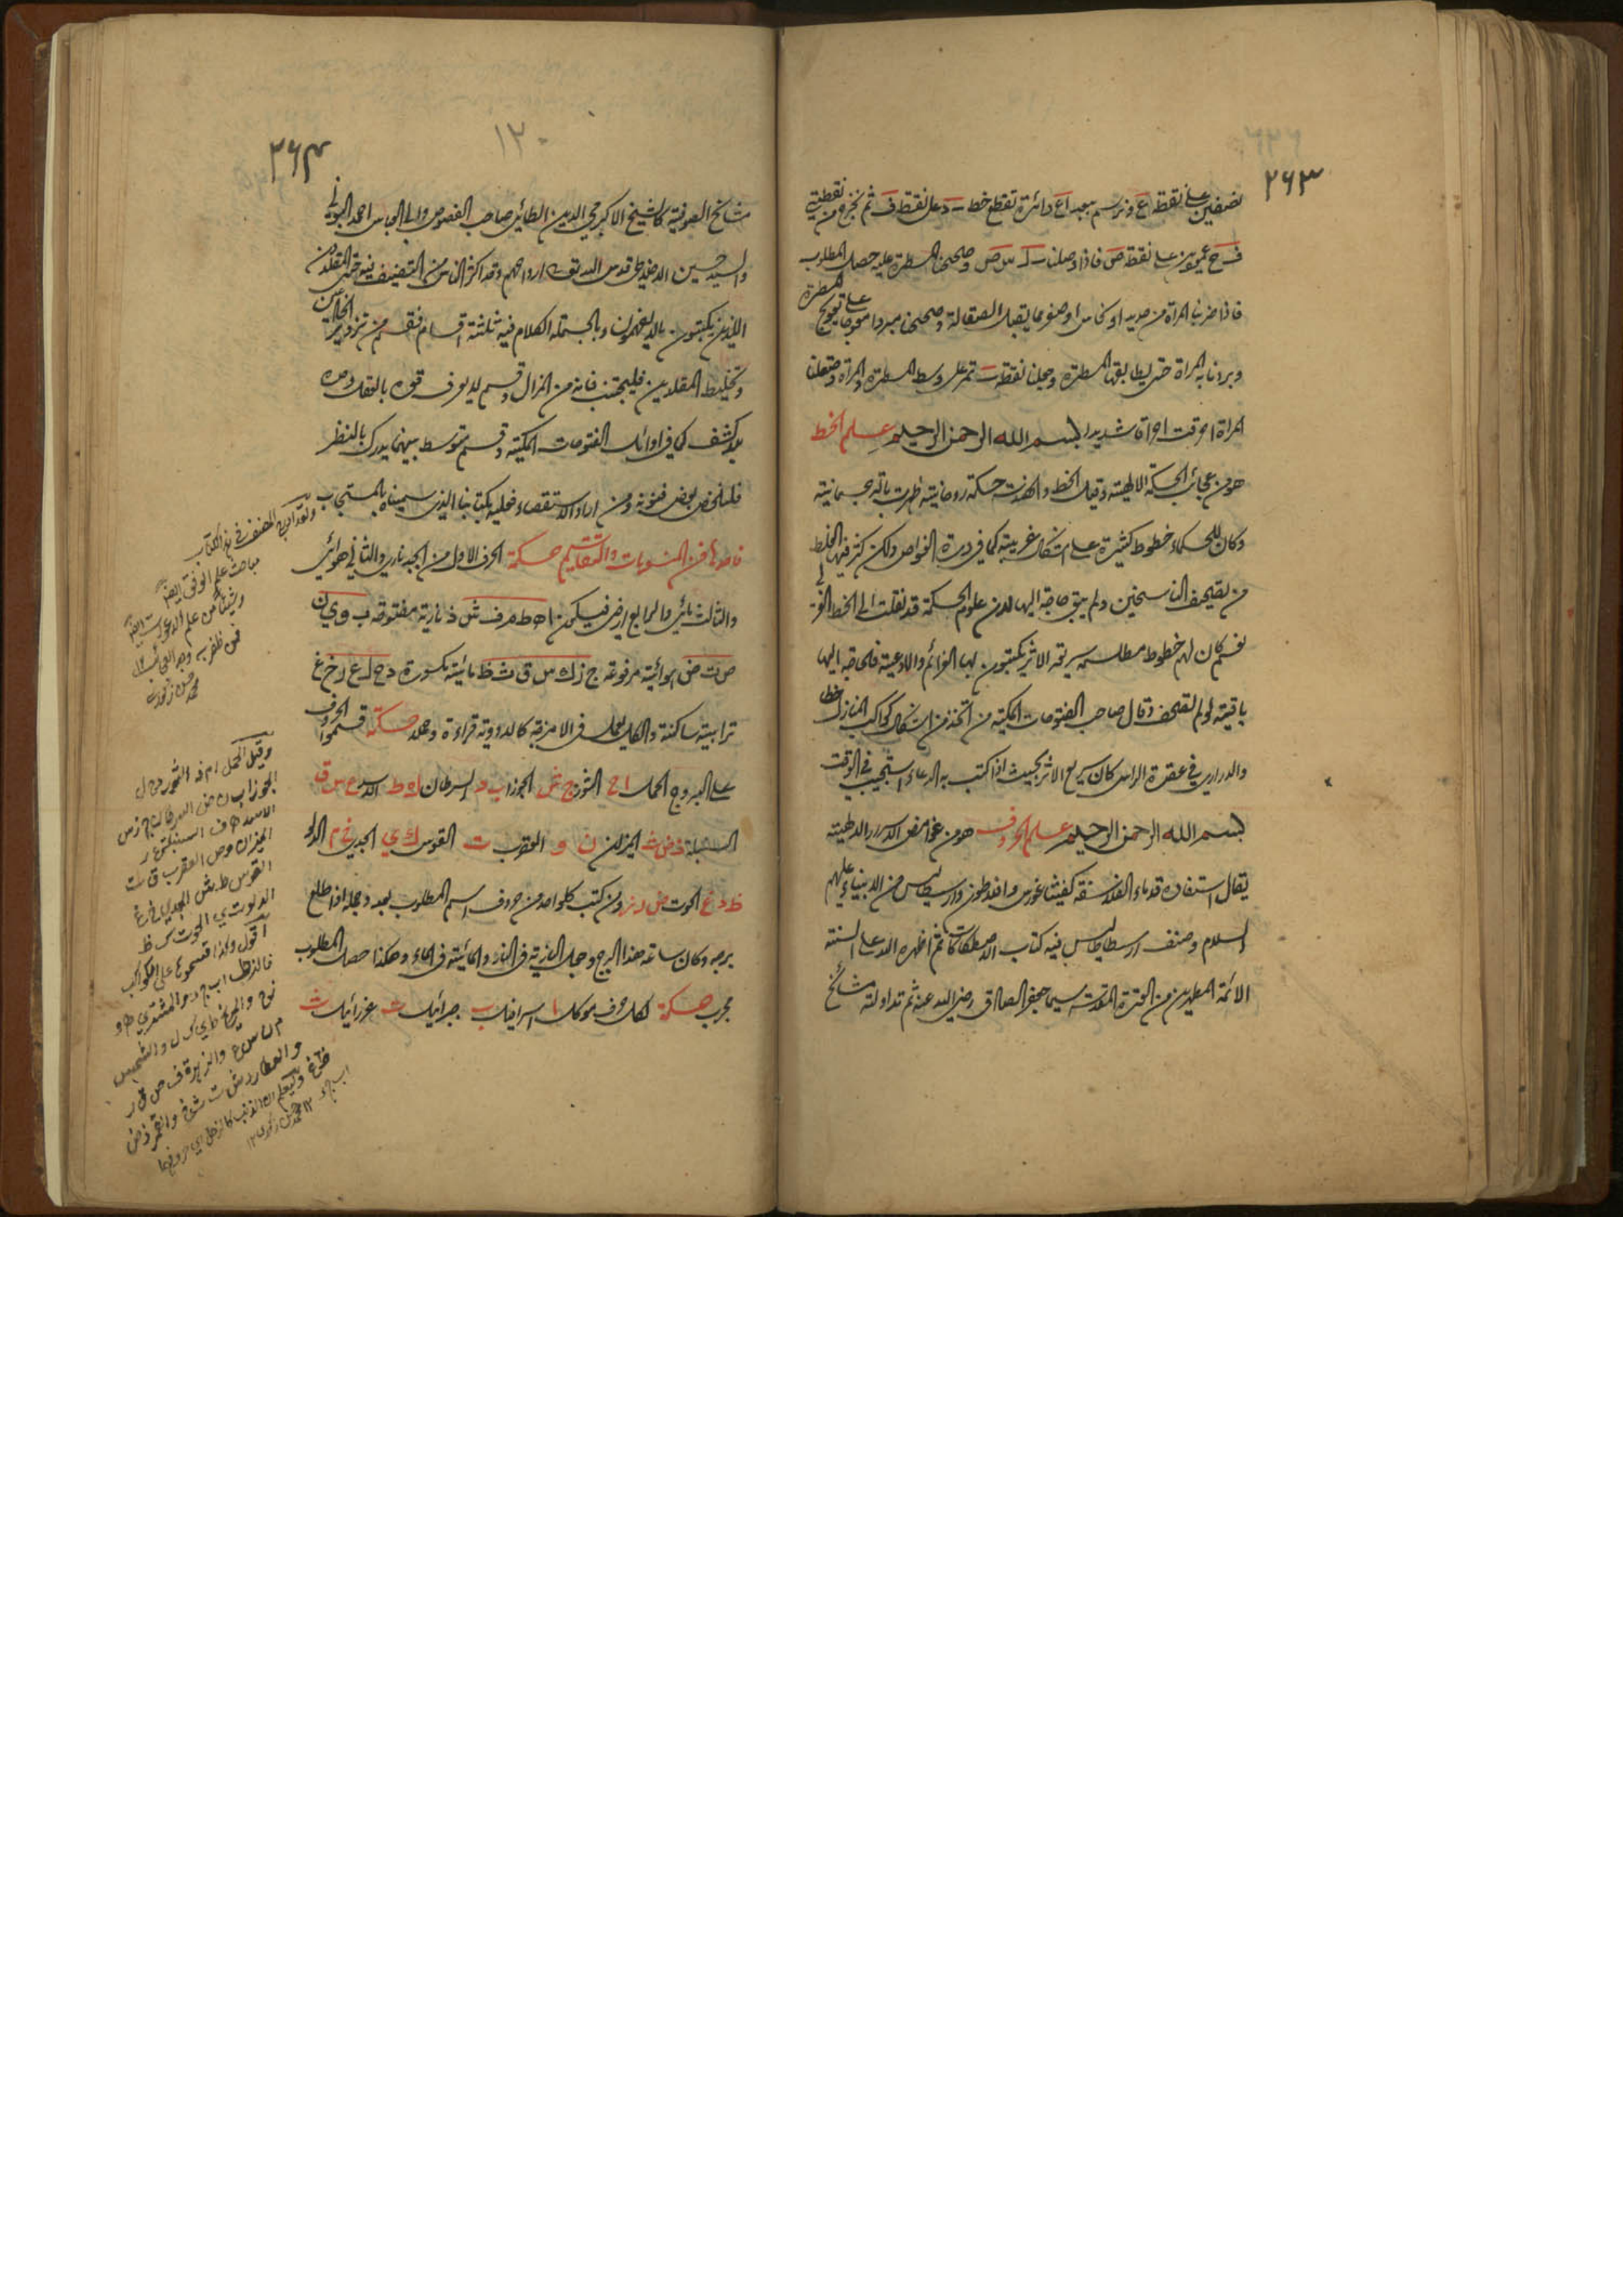 ٢٦٣
نصفين على نقطة ع ونرسم ببعد اع دائرة تقطع خط د على نقطة ف ثم نخرج من نقطتي
ف ح عمودين على نقطة ص فاذا وصلنا س ص وصححنا المسطرة عليه حصل المطلوب
فاذا ضربنا المرآة من حديد او نحاس او صفر مما يقبل الصقالة وصححنا مبردا معوجا على تعويج المسطرة
وبردنا به المرآة حتى يطابقها المسطرة وجعلنا نقطة تمر على وسط المسطرة والمرآة وصقلنا
المرآة احرقت احراقا شديدا بسم الله الرحمن الرحيم علم الخط
هو من عجائب الحكمة الالهية وقيل الخط والهندسة حكمة روحانية ظهرت بآلة جسمانية
وكان للحكماء خطوط كثيرة على اشكال غريبة كما في درة الغواص ولكن كثر فيها الخلط
من تصحيف الناسخين ولم يبق حاجة اليها لان علوم الحكمة قد نقلت الى الخط
نعم كان لهم خطوط مطلسمة سريعة الاثر يكتبون بها العزائم والادعية فالحاجة اليها
باقية لو لم تصحف وقال صاحب الفتوحات المكية من اتخذ من اشكال كواكب المنازل خطا
والدراري في عقدة الراس كان سريع الاثر بحيث اذا كتب به الدعاء استجيب في الوقت
بسم الله الرحمن الرحيم علم الحروف هو من غوامض الاسرار الالهية
يقال استفاده قدماء الفلاسفة كفيثاغورس وافلاطون وارسطاليس من الانبياء عليهم
السلام وصنف ارسطاطاليس فيه كتاب الاصطكاكات ثم اظهره الله على السنة
الائمة المطهرين من العترة المقدسة سيما جعفر الصادق رضي الله عنه ثم تداولته مشائخ
١٣٠
٢٦٤
مشائخ الصوفية كالشيخ الاكبر محي الدين الطائي صاحب الفصوص وابي العباس احمد البوني
والسيد حسين الاخلاطي قدس الله تعالى ارواحهم وقد اكثر الناس من التصنيف فيه حتى المقلدون
الذين يكتبون ما لا يفهمون وبالجملة الكلام فيه ثلثة اقسام فقسم من تزوير الخائنين
وتخليط المقلدين فليجتنب فانه من الهزال وقسم لا يعرف قوره بالعقل وحده
بلا كشف كما في اوائل الفتوحات المكية وقسم متوسط بينهما يدرك بالنظر
فلنلخص بعض فنونه ومن اراد الاستقصاء فعليه بكتابنا الذي سميناه بالمستجاب
فاحدها فن المنسوبات والتقاسيم حكمة الحرف الاول من ابجد ناري والثاني هوائي
والثالث مائي والرابع ارضي فيكن ا ه ط م ف ش ذ نارية مفتوحة ب و ي ن
ص ت ض هوائية مرفوعة ج ز ك س ق ث ظ مائية مكسورة د ح ل ع ر خ غ
ترابية ساكنة والكل يعمل في الامزجة كالادوية قراءة وحملا حكمة قسموا الحروف
على البروج الحمل ا ح الثور ج ش الجوزا ب د السرطان ه ط الاسد ع س ق
السنبلة ذ ض ث الميزان ن و العقرب ت القوس ك ي الجدي خ م الدلو
ظ د غ الحوت ص ر ز ومن كتب كلواحد من حروف اسم المطلوب بعدد جمله اذا طلع
برجه وكان ساعة هذا البرج وجعل النارية في النار والمائية في الماء وهكذا حصل المطلوب
مجرب حكمة لكل حرف موكل ا اسرافيل ب جبرائيل ت عزرائيل ث
ولقد اورد المصنف في هذا الكتاب
مباحث علم الوفق ايضا
وشيئا من علم الدعوات ايضا
فمن ظفر به
وقيل الحمل ا م ذ الثور د ح ل
الجوزا ب ن ض السرطان ج ز س
الاسد ه ف السنبلة ع ر
الميزان و ص العقرب ق ث
القوس ط ش الجدي خ غ
الدلو ت ي الحوت ك ظ
اقول وكذا قسموها على الكواكب
فالزحل ا ب ج د والمشتري ه و
ز ح والمريخ ط ي ك ل والشمس
م ن س ع والزهرة ف ص ق ر
والعطارد ش ت ث خ والقمر ذ ض
ظ غ